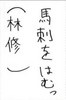 馬刺をはむっ
（林修）